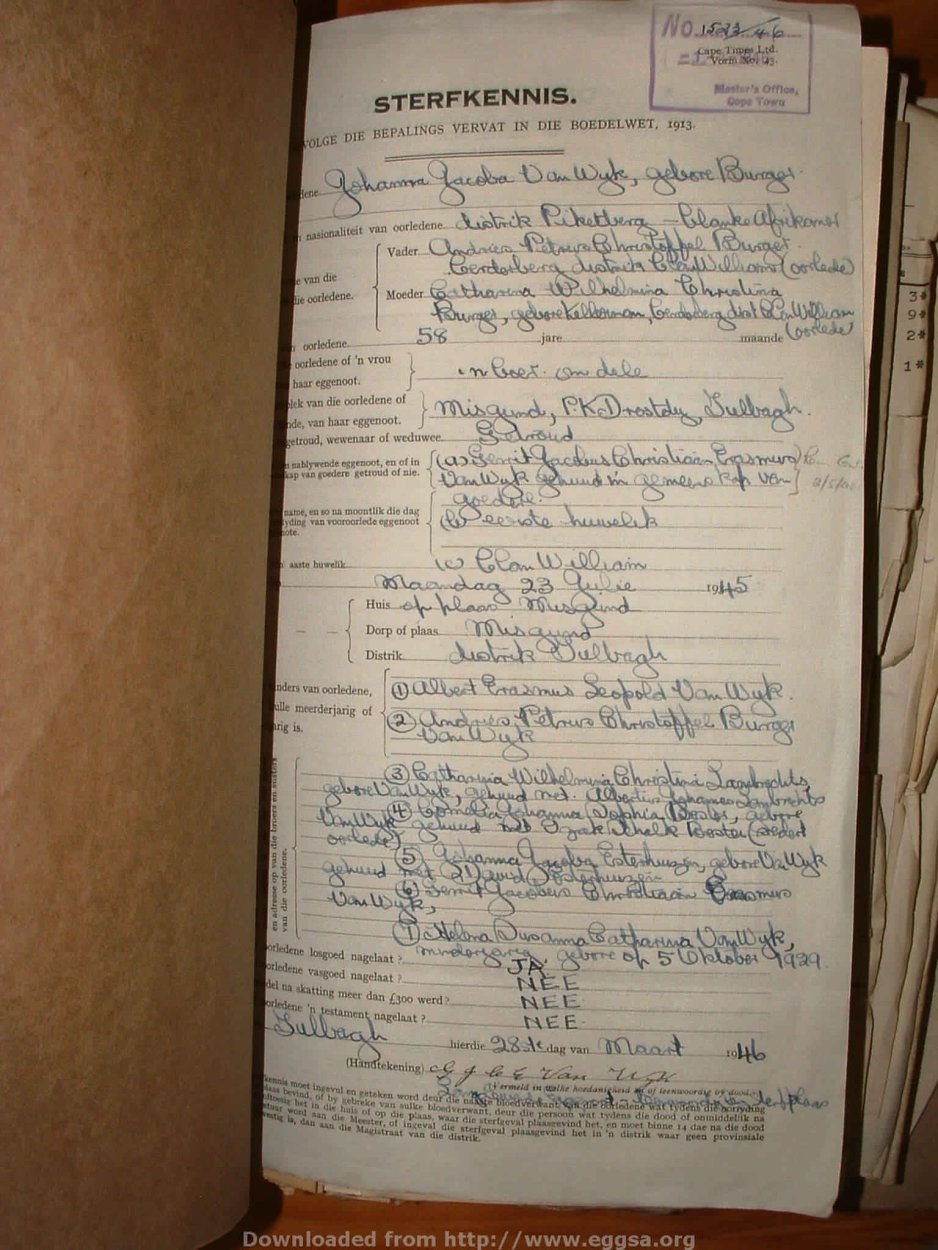 No. 1523/46
Cape Times Ltd.
Vorm No. 43.
Master's Office,
Cape Town
STERFKENNIS.
VOLGE DIE BEPALINGS VERVAT IN DIE BOEDELWET, 1913.
Johanna Jacoba Van Wyk, gebore Burger.
nasionaliteit van oorledene distrik Piketberg - blanke Afrikaner
Vader Andries Petrus Christoffel Burger.
Cerdorberg distrik ClanWilliam (oorlede)
e van die
die oorledene.
Moeder Catharina Wilhelmina Christina
Burger, gebore Kellerman, Cerdorberg dist ClanWilliam
(oorlede)
oorledene. 58 jare maande
oorledene of 'n vrou
haar eggenoot.
'n boer om dele
plek van die oorledene of
nde, van haar eggenoot.
Misgund, P.K. Drostdy, Tulbagh.
getroud, wewenaar of weduwee Getroud
nablywende eggenoot, en of in
skap van goedere getroud of nie.
(a) Gerrit Jacobus Christiaan Erasmus
Van Wyk gehuud in gemeenskap van
goedere.
name, en so na moontlik die dag
lyding van vooroorlede eggenoot
note.
(b) eerste huwelik
aaste huwelik (c) Clan William
Maandag 23 Julie 1945
Huis op plaas Misgund
Dorp of plaas Misgund
Distrik distrik Tulbagh
nders van oorledene,
ulle meerderjarig of
arig is.
(1) Albert Erasmus Leopold Van Wyk.
(2) Andries Petrus Christoffel Burger
Van Wyk
(3) Catharina Wilhelmina Christina Lambrechts,
gebore Van Wyk, gehuud met Albertus Johannes Lambrechts
(4) Cornelia Johanna Sophia Koster, gebore
Van Wyk gehuud met Izak Schalk Koster (sedert
oorlede)
(5) Johanna Jacoba Esterhuizen, gebore Van Wyk
gehuud met David Esterhuizen
(6) Gerrit Jacobus Christiaan Erasmus
Van Wyk,
(7) Helena Susanna Catharina Van Wyk,
minderjarig, gebore op 5 Oktober 1929.
en adresse op van die broers en susters
van die oorledene.
oorledene losgoed nagelaat? JA
oorledene vasgoed nagelaat? NEE
del na skatting meer dan £300 werd? NEE
oorledene 'n testament nagelaat? NEE
Tulbagh hierdie 28ste dag van Maart 1946
(Handtekening) G J C E Van Wyk
Vermeld in welke hoedanigheid en of teenwoordig by dood.
kennis moet ingevul en geteken word deur die naaste bloedverwant van die oorledene wat tydens die oorlyding
plaas bevind, of by gebreke van sulke bloedverwant, deur die persoon wat tydens die dood of onmiddelik na
toesig het in die huis of op die plaas, waar die sterfgeval plaasgevind het, en moet binne 14 dae na die dood
stuur word aan die Meester, of ingeval die sterfgeval plaasgevind het in 'n distrik waar geen provinsiale
vestig is, dan aan die Magistraat van die distrik.
3*
9*
2*
1*
Downloaded from http://www.eggsa.org